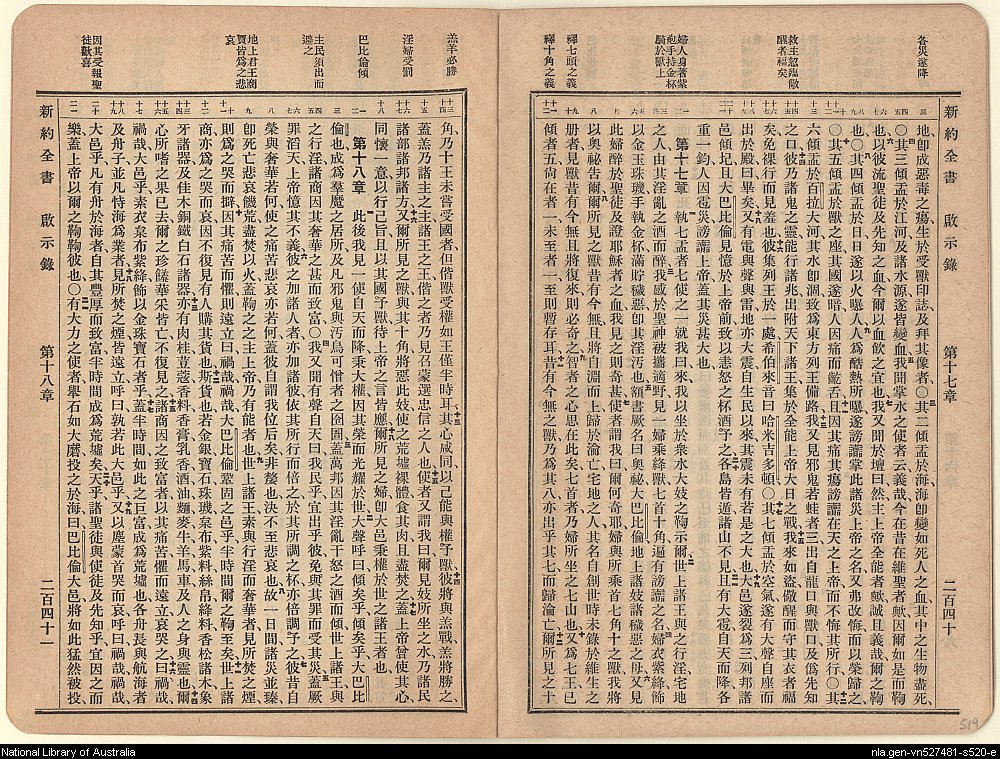 各災遂降
救主忽臨儆醒者福矣
婦人身著紫袍手持金杯騎於獸上
釋七頭之義
釋十角之義
新約全書 啟示錄 第十七章 二百四十
地卽成惡毒之瘍生於受獸印誌及拜其像者〇其二傾盂於海海卽變如死人之血其中之生物盡死
〇其三傾盂於江河及諸水源遂皆變血我聞掌水之使者云義哉今在昔在維聖者歟因爾如是而鞫
也以彼流聖徒及先知之血今爾以血飲之宜也我又聞於壇曰然主上帝全能者歟誠且義哉爾之鞫
也〇其四傾盂於日日遂以火㬥人人爲酷熱所曝遂謗讟掌此諸災上帝之名又弗改悔而以榮歸之
〇其五傾盂於獸位其國遂暗人因痛而齕舌且因其痛其瘍謗讟在天之上帝而不悔其所行〇其
六傾盂於百拉大河其水卽涸致爲東方列王備路我又見邪鬼若蛙者三出自龍口與獸口及僞先知
之口彼乃諸鬼之靈能行諸兆出附天下諸王集於全能上帝大日之戰我來如盜儆醒而守其衣者福
矣免裸行而見羞也彼集列王於一處希伯來音曰哈米吉多頓〇其七傾盂於空氣遂有大聲自座而
出於殿曰畢矣又有電與聲與雷地亦大震自生民以來其震未有若是之大也大邑遂裂爲三列邦諸
邑傾圮且大巴比倫見憶於上帝前致以恚怒之杯酒予之各島皆遁諸山不見且有大雹自天而降各
重一鈞人因雹災謗讟上帝蓋其災甚大也
第十七章 執七盂者七使之一就我曰來我以坐於衆水大妓之鞫示爾世上諸王與之行淫宅地
之人由其淫亂之酒而醉我感於聖神被攜適野見一婦乘絳獸七首十角遍有謗讟之名婦衣紫絳飾
以金玉珠璣手執金杯滿貯穢惡卽其淫污也額書名曰奧祕大巴比倫地上諸妓諸穢惡之母又見
此婦醉於聖徒及證耶穌者之血我見之則奇甚使者謂我曰爾何奇耶我將婦與所乘七首十角之獸
以奧祕告爾爾所見之獸昔有今無且將自淵而上歸於淪亡宅地之人其名自創世時未錄於維生之
册者見獸昔有今無且將復來則必奇之智者之心思在此矣七首者乃婦所坐之七山也又爲七王已
傾者五尙在者一未至者一至則暫存耳昔有今無之獸乃爲其八亦出乎其七而歸淪亡爾所見之十
羔羊必勝
淫婦受罰
巴比倫傾
主民須出而避之
地上君王商賈皆爲之悲哀
因其受報聖徒歡喜
角乃十王未嘗受國者但偕獸受權如王僅半時耳其心咸同以己能與權予獸彼將與羔戰羔將勝之
蓋羔乃諸主之主諸王之王偕之者乃見召蒙選忠信之人也使者又謂我曰爾見妓所坐之水乃諸民
諸部諸邦諸方又爾所見之獸與其十角將惡此妓使之荒墟裸體食其肉且盡焚之蓋上帝曾使其心
同懷一意以行己旨且以其國予獸待上帝之言皆應爾所見之婦卽大邑秉權於世之諸王者也
第十八章 此後我見一使自天而降秉大權因其榮而光耀於世大聲呼曰傾矣傾矣乎大巴比
倫也成爲羣魔之居所及凡邪鬼與汚鳥可憎者之囹圄蓋萬邦因其淫亂干怒之酒而傾世上諸王與
之行淫諸商因其奢華之甚而致富〇我又聞有聲自天曰我民乎宜出乎彼免與其罪而受其災蓋厥
罪滔天上帝憶其不義彼之加諸人者亦加諸彼依其所行而倍之於其所調之杯亦倍調予之彼昔自
榮與奢華若何使之痛苦悲哀亦若何蓋彼自謂我位后矣非嫠也決不至悲哀也故一日間諸災並臻
卽死亡悲哀饑荒盡焚以火蓋鞫之之主上帝乃有能者也世上諸王素與行淫而奢華者見所焚之煙
則爲之哭而擗因其痛苦而懼則遠立曰禍哉禍哉大巴比倫鞏固之邑乎半時間爾之鞫至矣世上諸
商亦爲之哭而哀因不復見有人購其貨也斯貨也若金銀寶石珠璣枲布紫料絲帛絳料香松諸木象
牙諸器及佳木銅鐵白石諸器亦有肉桂荳蔻香料香膏乳香酒油麵麥牛羊馬車及人之身與靈也爾
心所嗜之果已去爾之珍饈華采皆亡不復見之諸商因之致富者以其痛苦而懼而遠立哭之哀之曰禍哉
禍哉大邑乎素衣枲布紫絳飾以金珠寶石者乎蓋半時間如此之巨富成爲荒墟也各舟長與航海者
及舟子並凡恃海爲業者見所焚之煙皆遠立呼曰孰若此大邑乎又以塵蒙首哭而哀呼曰禍哉禍哉
大邑乎凡有舟於海者自其豐厚而致富半時間成爲荒墟矣天乎諸聖徒與使徒及先知乎宜因之而
樂蓋上帝以爾之鞫鞫彼也〇有大力之使者舉石如大磨投之於海曰巴比倫大邑將如此猛然被投
新約全書 啟示錄 第十八章 二百四十一
519
National Library of Australia
nla.gen-vn527481-s520-e